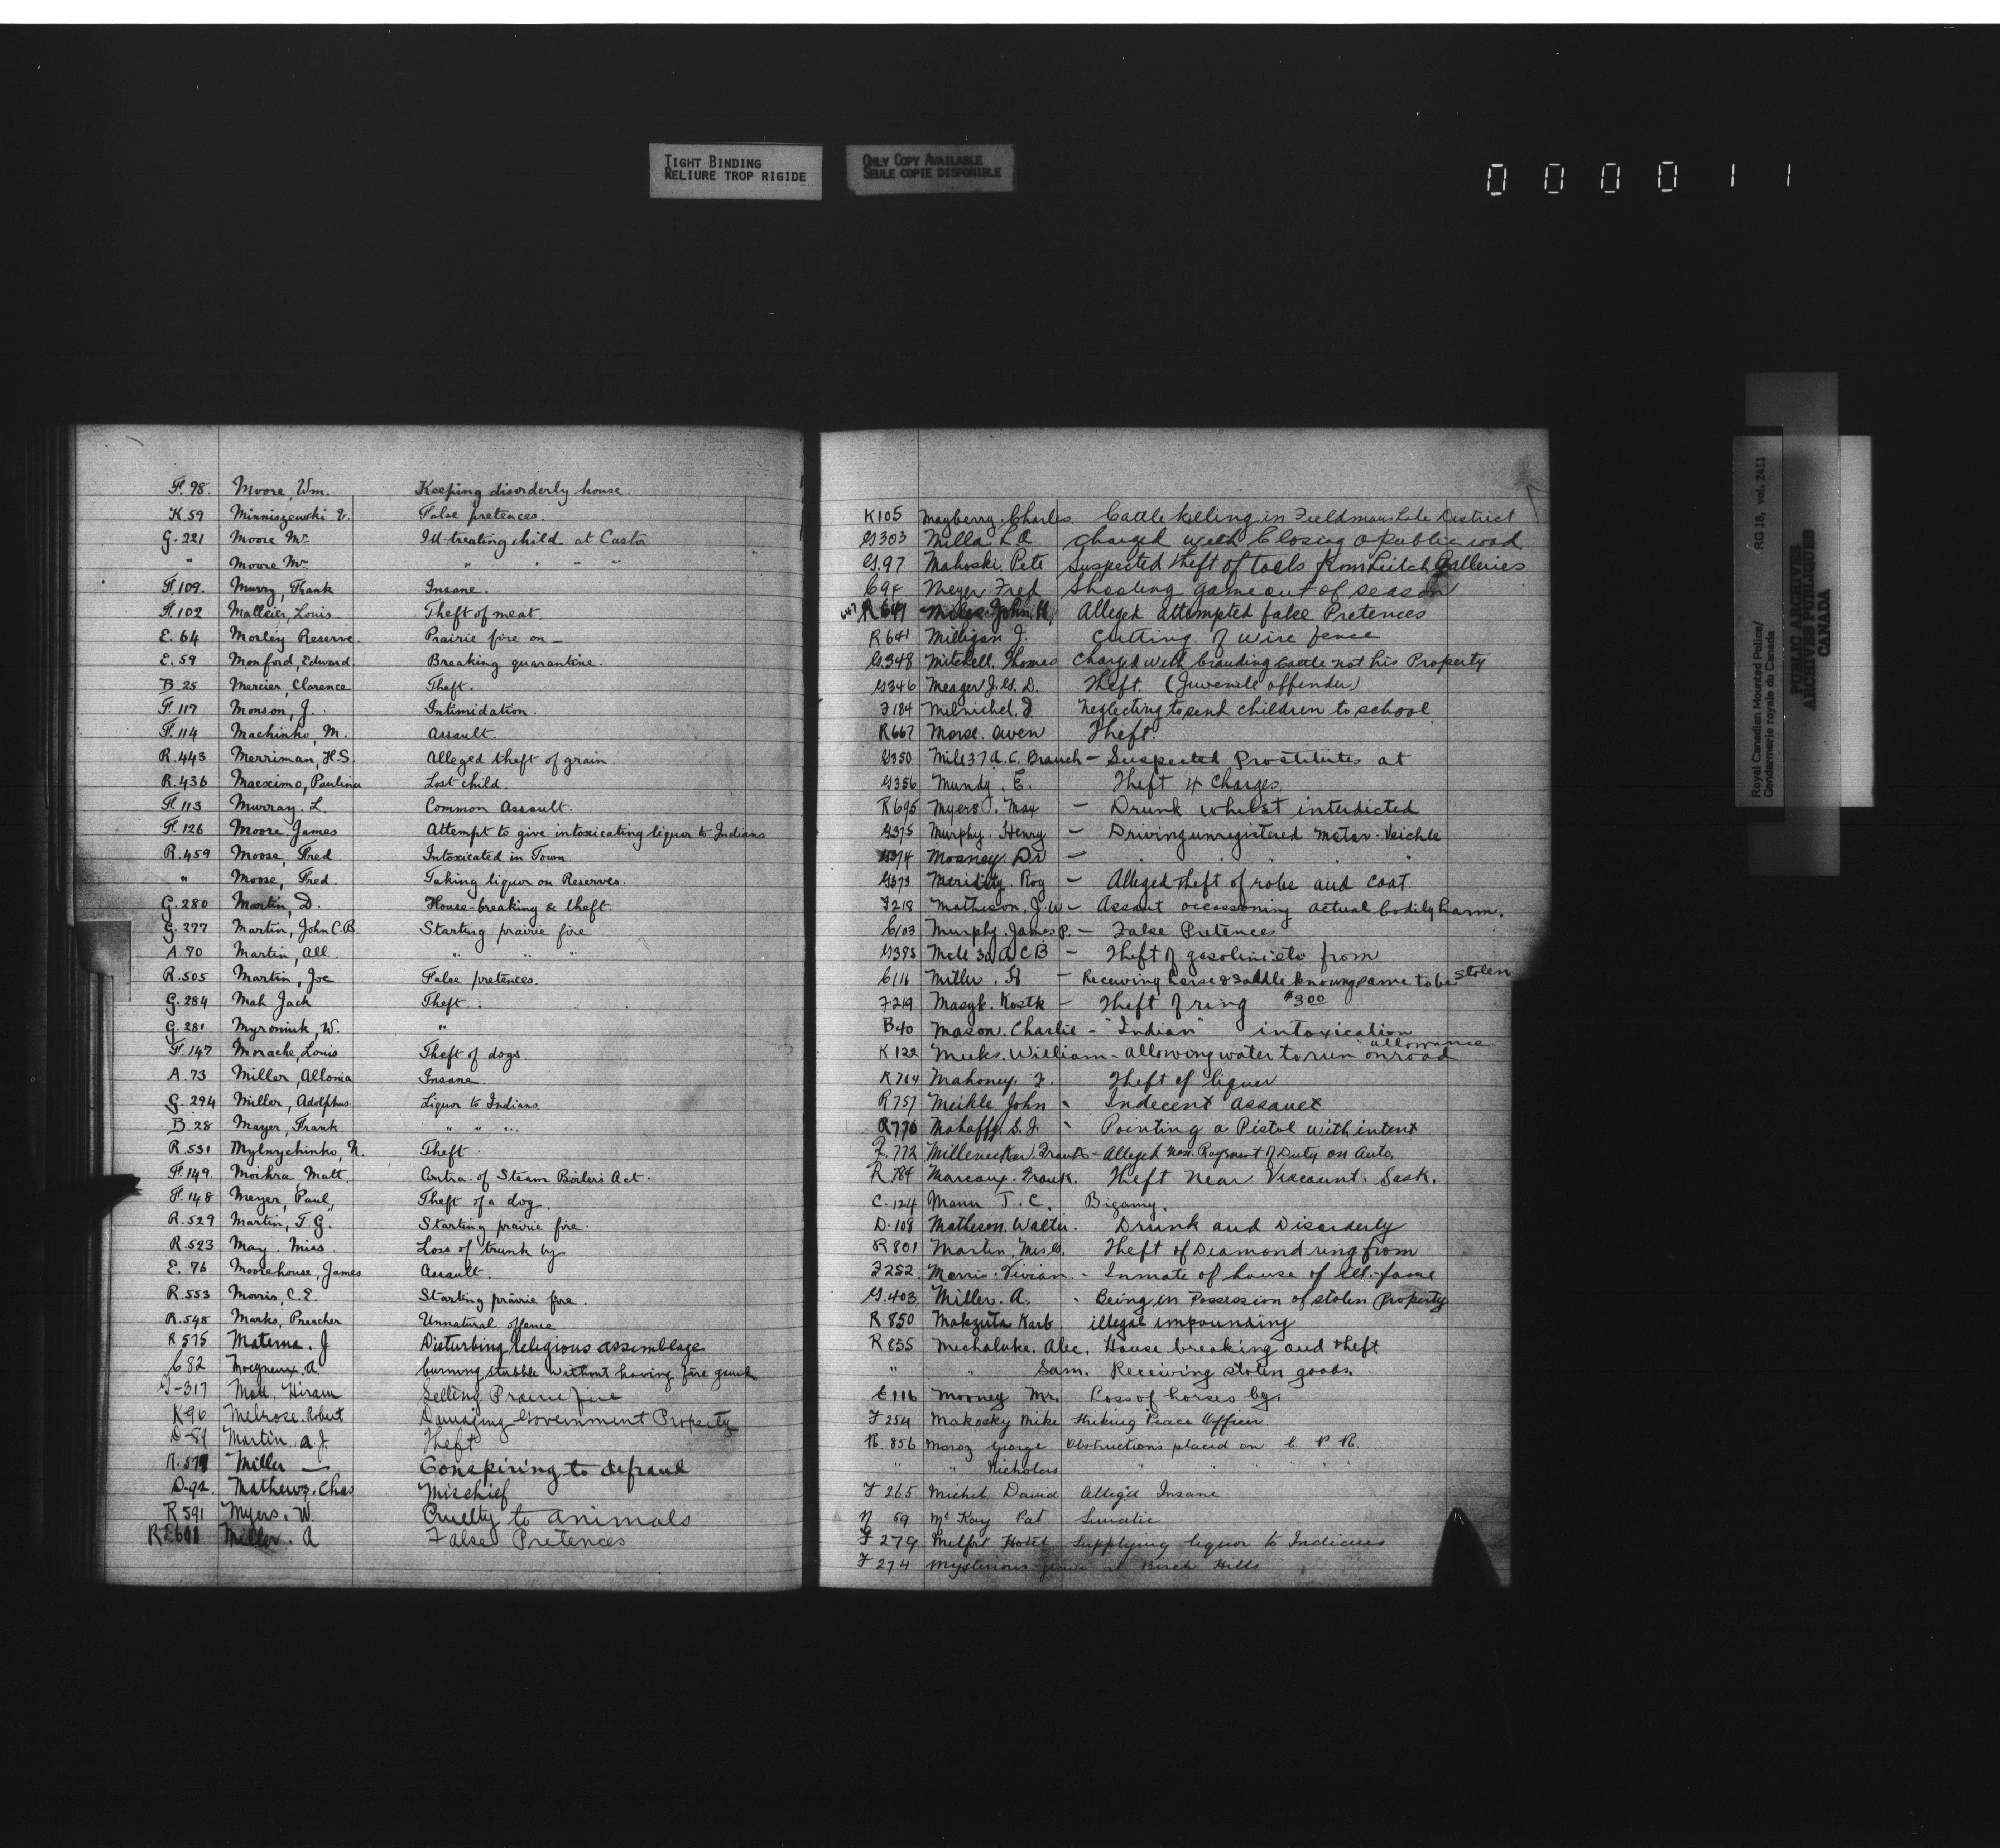 TIGHT BINDING
RELIURE TROP RIGIDE
ONLY COPY AVAILABLE
SEULE COPIE DISPONIBLE
000011
F. 98. Moore, Wm. Keeping disorderly house.
K. 59 Minniszewski V. False pretences.
G. 221 Moore Mr. Ill-treating child at Castor
" Moore Mrs. " " " "
F. 109. Murry, Frank Insane.
F. 102 Malleier, Louis Theft of meat.
E. 64 Morley Reserve. Prairie fire on —
E. 59 Monford, Edward. Breaking quarantine.
B. 25 Mercier, Clarence Theft.
F. 117 Monson, J. Intimidation.
F. 114 Machinko, M. Assault.
R. 443 Merriman, H.S. Alleged theft of grain.
R. 436 Macximo, Paulina Lost child.
F. 113 Murray. L. Common Assault.
F. 126 Moore. James Attempt to give intoxicating liquor to Indians
R. 459 Moose, Fred Intoxicated in Town
" Moose, Fred. Taking liquor on Reserves.
G. 280 Martin, D. House-breaking & theft.
G. 277 Martin, John C.B. Starting prairie fire
A. 70 Martin, All. " " "
R. 505 Martin, Joe False pretences.
G. 284 Mah Jack Theft.
G. 281 Myroniuk, W. "
F. 147 Morache, Louis Theft of dogs.
A. 73 Miller, Allonia Insane.
G. 294 Miller, Adolphus Liquor to Indians.
B. 28 Mayer, Frank. " " "
R. 531 Mylnychinko, N. Theft.
F. 149. Moikra Matt. Contra. of Steam Boilers Act.
F. 148 Meyer, Paul, Theft of a dog.
R. 529 Martin, T. G. Starting prairie fire.
R. 523 May. Miss. Loss of trunk by
E. 76 Moorehouse, James Assault.
R. 553 Morris, C. E. Starting prairie fire.
R. 548 Marks, Preacher Unnatural offence
R 575 Materna. J Disturbing religious assemblage
C 82 burning stubble without having fire guard
G-317 Mott. Hiram Setting Prairie fire
K-96 Melrose. Robert Damaging Government Property
D-89 Martin. A. J. Theft
Miller — Conspiring to defraud
D-92. Mathews. Chas Mischief
R 591 Myers. W. Cruelty to animals
Miller. A False Pretences
K105 Mayberry. Charles Cattle killing in District
G303 Mills. L.A charged with Closing a public road
G.97 Mahoski. Pete Suspected theft of tools from Leitch Galleries
Meyer Fred Shooting game out of season
647 R 647 Miles John H, Alleged attempted false Pretences
R 641 Milligan J. Cutting of wire fence
G348 Mitchell. Thomas Charged with branding Cattle not his Property
G346 Meager J. G. D. Theft. (Juvenile offender)
F184 Melnichel. J neglecting to send children to school
R667 Morse. Owen Theft.
G350 Mile 37 A.C. Branch — Suspected Prostitutes at
G356 Mundy. E. Theft 4 Charges.
R695 Myers J. Max — Drunk whilst interdicted
G375 Murphy. Henry — Driving unregistered Motor-Veichle
G374 Mooney. Dr — " "
G373 Meridity. Roy — Alleged theft of robe and Coat
F218 Matheson. J.W — Assaut occassoning actual bodily harm.
C103 Murphy. James P. — False Pretences
G395 A C B — Theft of from
C116 Miller. H — Receiving horse & saddle knowing same to be stolen
F219 Masyk. Kostk — Theft of ring $3.00
B40 Mason. Charlie — "Indian" intoxication
K122 Meeks. William — allowing water to run on road allowance
R764 Mahoney. F. Theft of liquor
R757 Meikle John Indecent assault
R770 Mahaffy. S. J. Pointing a Pistol with intent
F. 772 Millenecker Frank — Alleged non. Payment of Duty on Auto.
R 784 Marcoux. Frank. Theft near Viscount. Sask.
C. 124 Mann T. C. Bigamy.
D. 108 Matheson. Walter. Drunk and Disorderly
R 801 Martin, Theft of Diamond ring from
F252. Morris. Vivian. Inmate of house of ill-fame
G. 403. Miller. A. Being in Possession of stolen Property
R 850 Makzuta Karb illegal impounding
R 835 Mechaluke. Alec. House breaking and theft.
" " Sam. Receiving stolen goods.
E 116 Mooney Mr. Loss of horses by.
F 254 Makosky Mike Striking Peace Officer.
R. 856 Moroz George Obstructions placed on C. P. R.
" " Nicholas " " " " "
F 265 Michel David Alleg'd Insane
N 69 Mc Kay Pat Lunatic
F 279 Melfort Hotel Supplying liquor to Indians
F 274 Mysterious at Birch Hills
Royal Canadian Mounted Police/ RG 18, vol. 2411
Gendarmerie royale du Canada
PUBLIC ARCHIVES
ARCHIVES PUBLIQUES
CANADA